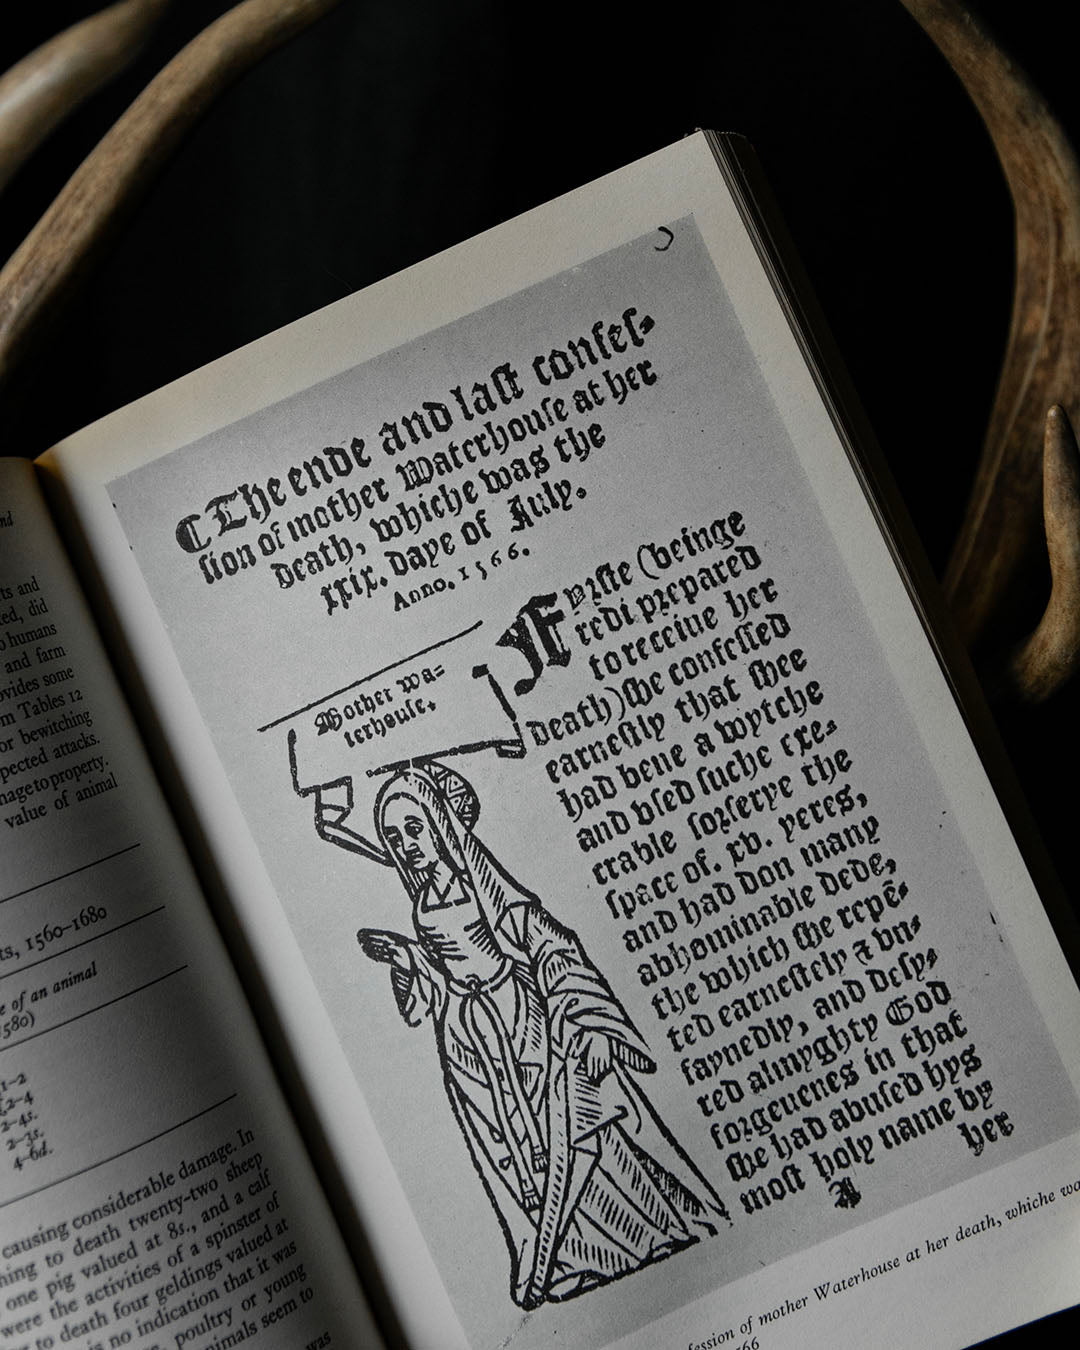 nd
ts and
ked, did
o humans
and farm
ovides some
m Tables 12
or bewitching
pected attacks.
nage to property.
value of animal
ts, 1560–1680
e of an animal
1580)
1–2
2–4
2–4s.
2–3s.
4–6d.
causing considerable damage. In
hing to death twenty-two sheep
one pig valued at 8s., and a calf
were the activities of a spinster of
to death four geldings valued at
is no indication that it was
, poultry or young
nimals seem to
was
¶ The ende and laſt confeſ-
ſion of mother Waterhouſe at her
death, whiche was the
xxix. daye of July.
Anno. 1566.
Mother wa=
terhouſe.
Fyrſte (beinge
redi prepared
to receiue her
death) ſhe confeſſed
earneſtly that ſhee
had bene a wytche
and vſed ſuche exe-
crable ſorſerye the
ſpace of. xv. yeres,
and had don many
abhominable dede,
the which ſhe repē-
ted earneſtely & vn-
faynedly, and deſy-
red almyghty God
forgeuenes in that
ſhe had abuſed hys
moſt holy name by
her
A
fession of mother Waterhouse at her death, whiche wa
566